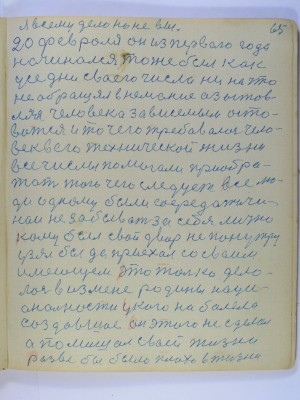 65
Я всему дело но не вы.
20 февраля он из первого года
начинался, тоже был как
усе дни своего числа ни на что
не обращял внемание а зготов
лял человека зависемым ото
ватся и то чего требавалос чело-
веквего технической жизни
все числы помогали приобра-
тат того чего следует все лю-
ди одному были
нам не забыват за себя лично
кому был свой двар не
бы да приехал со своим
имеющем это только дела-
лос визмене родины наци-
оналности у кого на балело
создавшае он этого не сделал
а помишал своей жизни
разве бы было плохо вжизни